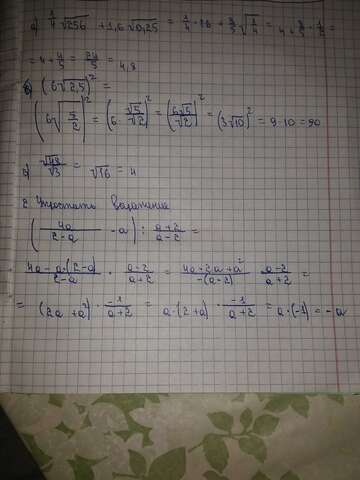 а) 1/4 √256 + 1,6 √0,25 = 1/4 · 16 + 8/5 √1/4 = 4 + 8/5 · 1/2 =
= 4 + 4/5 = 24/5 = 4,8
(6√2,5)² =
(6√5/2)² = (6 · √5/√2)² = (6√5/√2)² = (3√10)² = 9 · 10 = 90
√48/√3 = √16 = 4
2 Упростить
(4a/2-a - a) : a+2/a-2 =
4a-a·(2-a)/2-a · a-2/a+2 = 4a-2a+a²/-(a-2) · a-2/a+2 =
= (2a + a²) · -1/a+2 = a·(2+a) · -1/a+2 = a·(-1) = -a